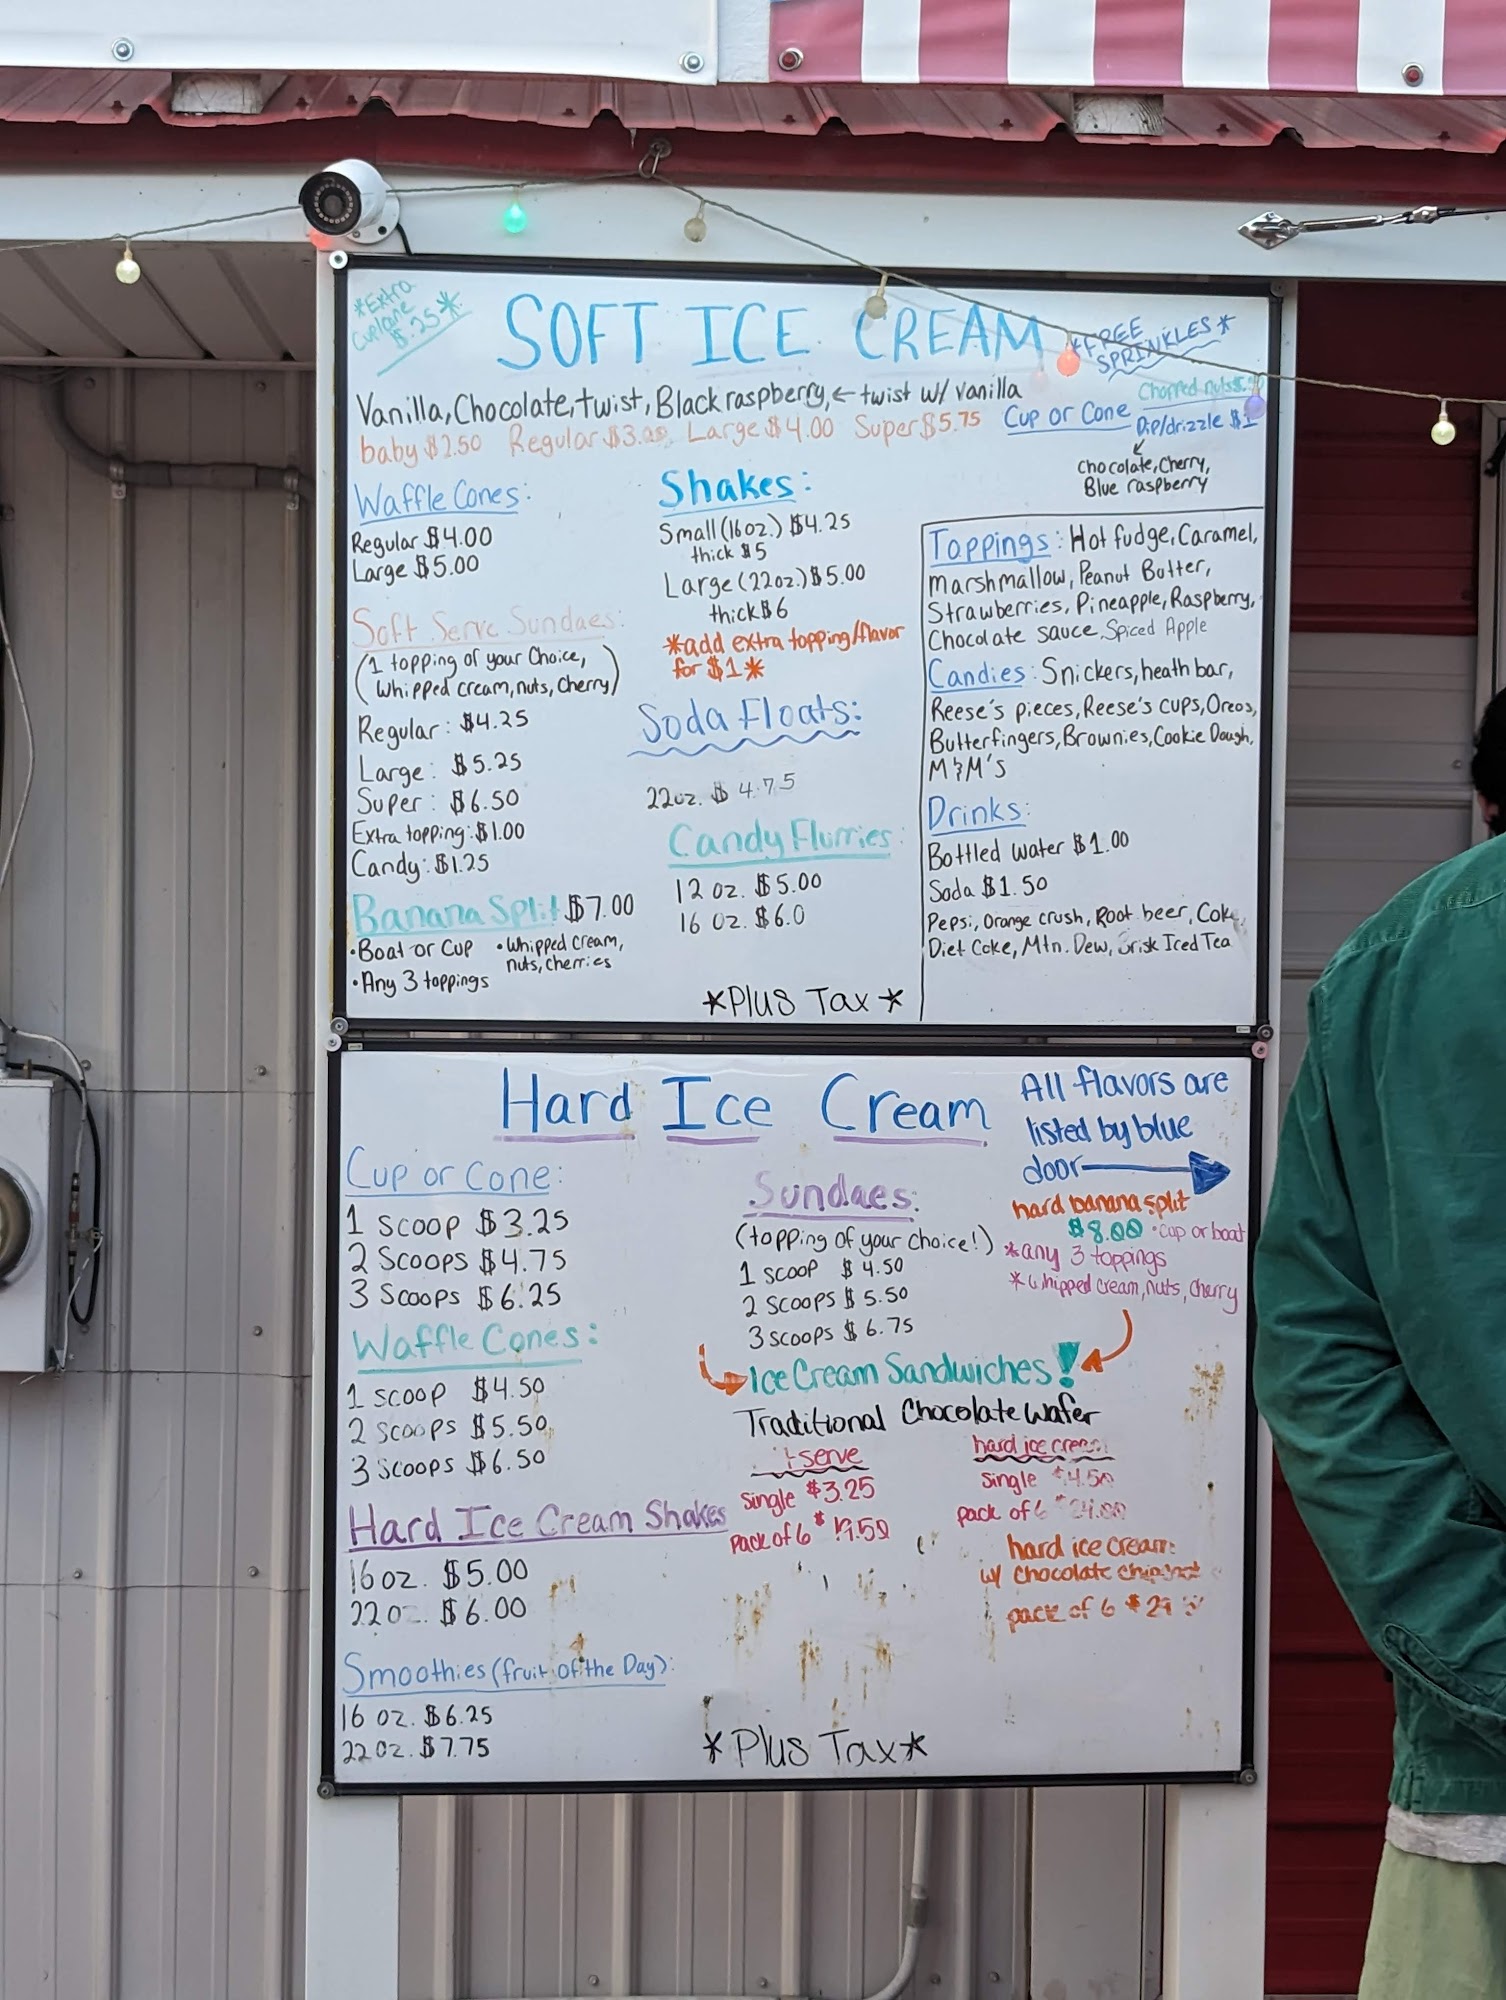 *Extra
Cup/cone
$.25*
SOFT ICE CREAM
*FREE
SPRINKLES*
Vanilla, Chocolate, twist, Black raspberry, ← twist w/ vanilla
baby $2.50 Regular $3.00 Large $4.00 Super $5.75
Cup or Cone
Chopped nuts
Dip/drizzle $1
Chocolate, Cherry,
Blue raspberry
Waffle Cones:
Regular $4.00
Large $5.00
Soft Serve Sundaes:
(1 topping of your Choice,
whipped cream, nuts, Cherry)
Regular: $4.25
Large: $5.25
Super: $6.50
Extra topping: $1.00
Candy: $1.25
Banana Split $7.00
•Boat or Cup
•Any 3 toppings
•Whipped cream,
nuts, cherries
Shakes:
Small (16oz.) $4.25
thick $5
Large (22oz.) $5.00
thick $6
*add extra topping/flavor
for $1*
Soda Floats:
22oz. $4.75
Candy Flurries:
12 oz. $5.00
16 oz. $6.0
*Plus Tax*
Toppings: Hot fudge, Caramel,
Marshmallow, Peanut Butter,
Strawberries, Pineapple, Raspberry,
Chocolate sauce, Spiced Apple
Candies: Snickers, heath bar,
Reese's pieces, Reese's cups, Oreos,
Butterfingers, Brownies, Cookie Dough,
M&M's
Drinks:
Bottled water $1.00
Soda $1.50
Pepsi, Orange crush, Root beer, Coke,
Diet Coke, Mtn. Dew, Brisk Iced Tea
Hard Ice Cream
All flavors are
listed by blue
door
Cup or Cone:
1 Scoop $3.25
2 Scoops $4.75
3 Scoops $6.25
Waffle Cones:
1 Scoop $4.50
2 Scoops $5.50
3 Scoops $6.50
Hard Ice Cream Shakes
16 oz. $5.00
22 oz. $6.00
Smoothies (fruit of the Day):
16 oz. $6.25
22 oz. $7.75
Sundaes:
(topping of your choice!)
1 scoop $4.50
2 scoops $5.50
3 scoops $6.75
hard banana split
$8.00 •cup or boat
*any 3 toppings
*Whipped cream, nuts, cherry
Ice Cream Sandwiches!
Traditional Chocolate Wafer
serve
single $3.25
pack of 6 $19.50
hard ice cream
single $4.50
pack of 6 $24.00
hard ice cream
w/ chocolate
pack of 6 $29
*Plus Tax*